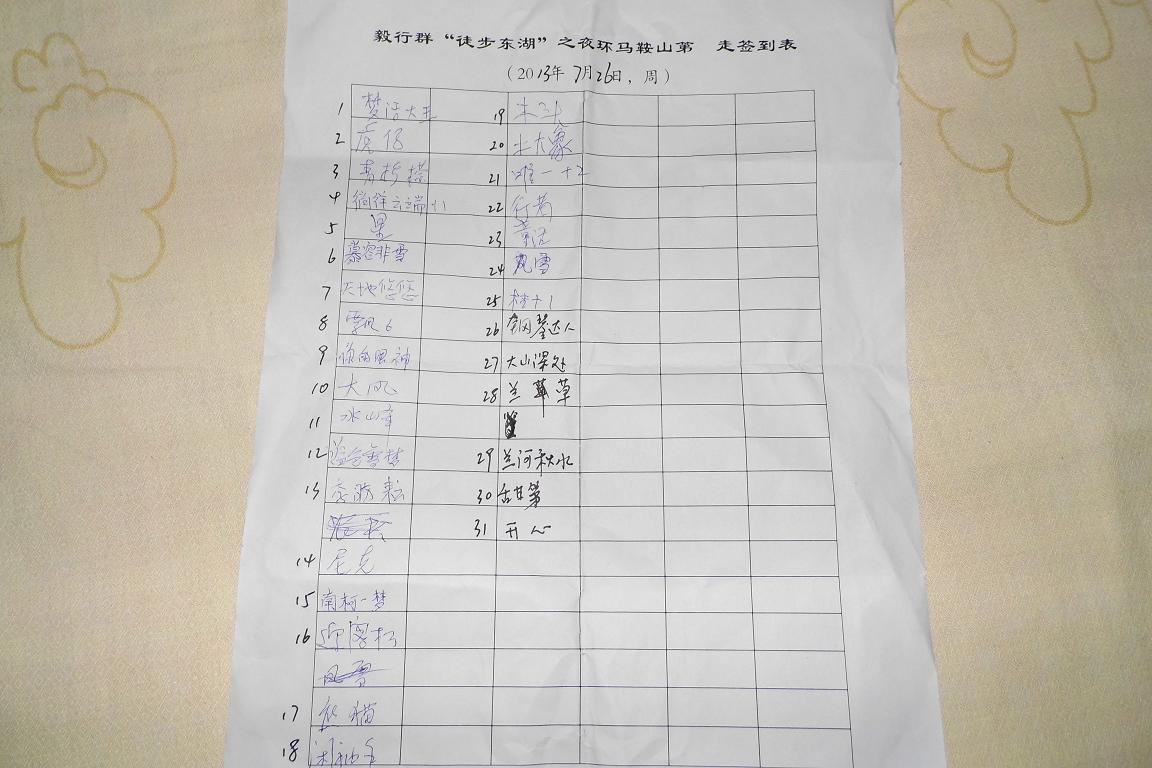 毅行群“徒步东湖”之夜环马鞍山第 走签到表
(2013年 7月26日,周 )
1 梦话大王
2 虎仔
3 青柠檬
4 徜徉云端+1
5 墨
6 慕容非雪
7 天地悠悠
8 雪风6
9 你的眼神
10 大风
11 冰山
12
13
14 尼克
15 南柯一梦
16 迎客松
17 熊猫
18
19 木头
20 大象
21 唯一+2
22 行者
23
24 风雪
25 桂+1
26 钢琴达人
27 大山深处
28 兰草
29 兰河秋水
30 甜
31 开心